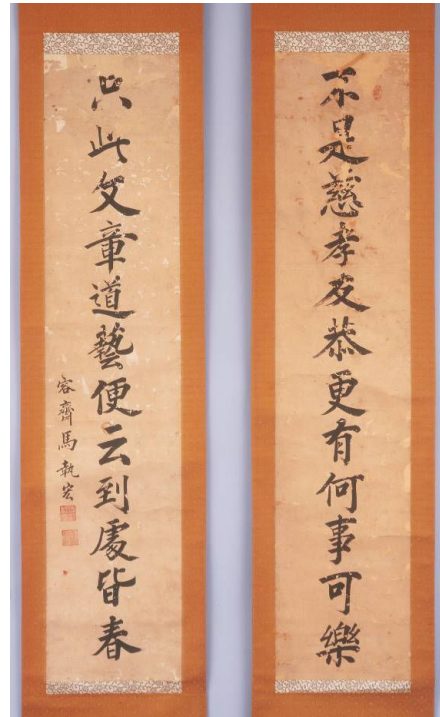 不是慈孝友恭更有何事可樂
只此文章道藝便云到處皆春
容齊馬執宏